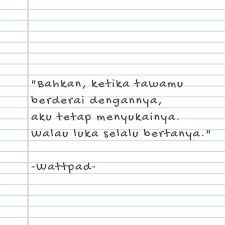 "Bahkan, ketika tawamu
berderai dengannya,
aku tetap menyukainya.
walau luka selalu bertanya."
-wattpad-